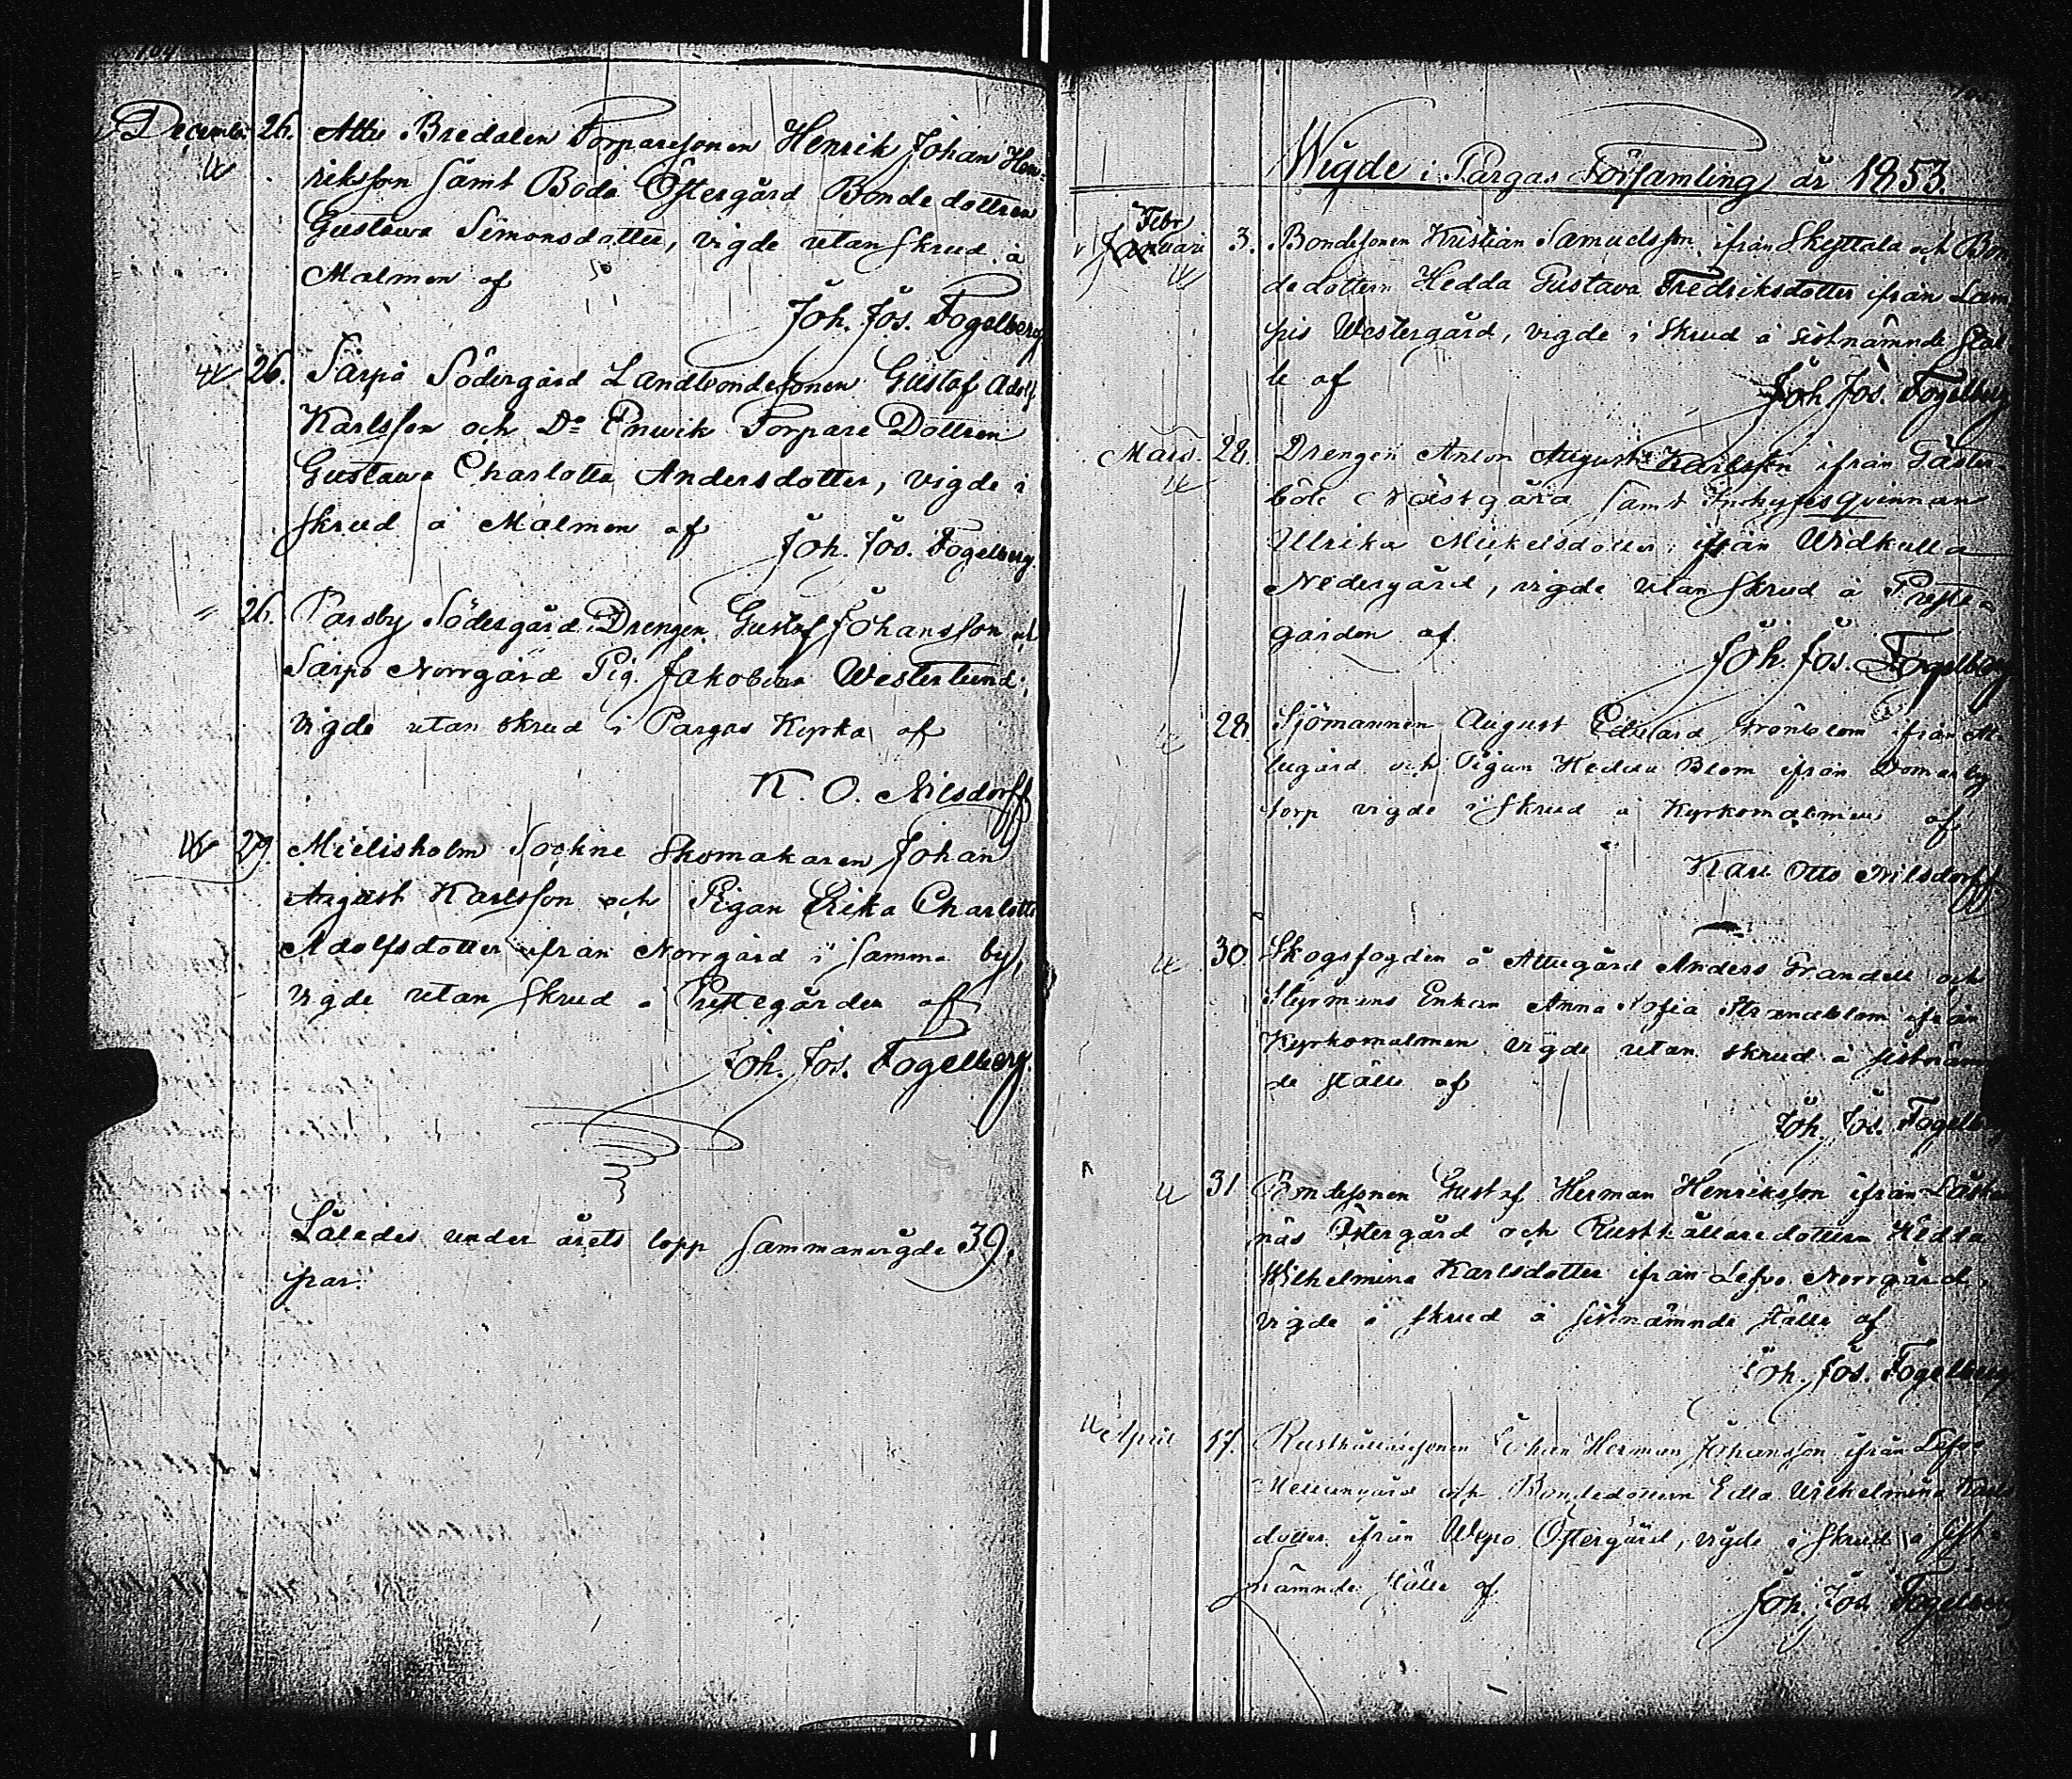 104
December 26. Attu Bredalen Torparesonen Henrik Johan Hen-
riksson samt Boda Östergård Bondedottren
Gustava Simonsdotter, vigde utan skrud å
Malmen af
Joh. Jos. Fogelberg
26. Särpo Södergård Landbondesonen Gustaf Adolf
Karlsson och Do Enwik Torpare Dottren
Gustawa Charlotta Andersdotter, vigde i
skrud å Malmen af
Joh. Jos. Fogelberg.
" 26. Parsby Södergård Drengen Gustaf Johansson och
Särpo Norrgård Pig. Jakobina Westerlund,
vigde utan skrud i Pargas Kyrka af
K. O. Nilsdorff
29. Mielisholm Sockne Skomakaren Johan
August Karlsson och Pigan Erika Charlotta
Adolfsdotter ifrån Norrgård i samma by,
vigde utan skrud i Prestegården af
Joh. Jos. Fogelberg.
Således under årets lopp sammanvigde 39.
par.
Wigde i Pargas Församling år 1853.
Febr
Januari 3. Bondesonen Kristian Samuelsson ifrån Skyttala och Bon
dedottern Hedda Gustava Fredriksdotter ifrån Lam
pis Westergård, vigde i skrud å sistnämnde stäl
le af
Joh. Jos. Fogelberg
Mars. 28. Drengen Anton August Karlsson ifrån Täster-
böle Nästgård samt Inhysesqvinnan
Ullrika Mickelsdotter ifrån Widkulla
Nedergård, vigde utan skrud å Preste-
gården af
Joh. Jos. Fogelberg
28. Sjömannen August Edvard Grönblom ifrån At-
tugård och Pigan Hedda Blom ifrån Domarby
torp vigde i skrud å Kyrkomalmen af
Karl Otto Nilsdorff
30. Skogsfogden å Attugård Anders Grandell och
Styrmans Enkan Anna Sofia Strandblom ifrån
Kyrkomalmen vigde utan skrud å sistnämn
de ställe af
Joh. Jos. Fogelberg
31 Bondesonen Gustaf Herman Henriksson ifrån Läska
näs Östergård och Rusthållaredottern Hedda
Wilhelmina Karlsdotter ifrån Lefvo Norrgård,
vigde i skrud å sistnämnde ställe af
Joh. Jos. Fogelberg
April 17. Rusthållaresonen Johan Herman Johansson ifrån Lofvo
Mellangård och Bondedottern Edla Wilhelmina Karls
dotter ifrån Wepo Östergård, vigde i skrud å sist-
nämnde ställe af
Joh. Jos. Fogelberg